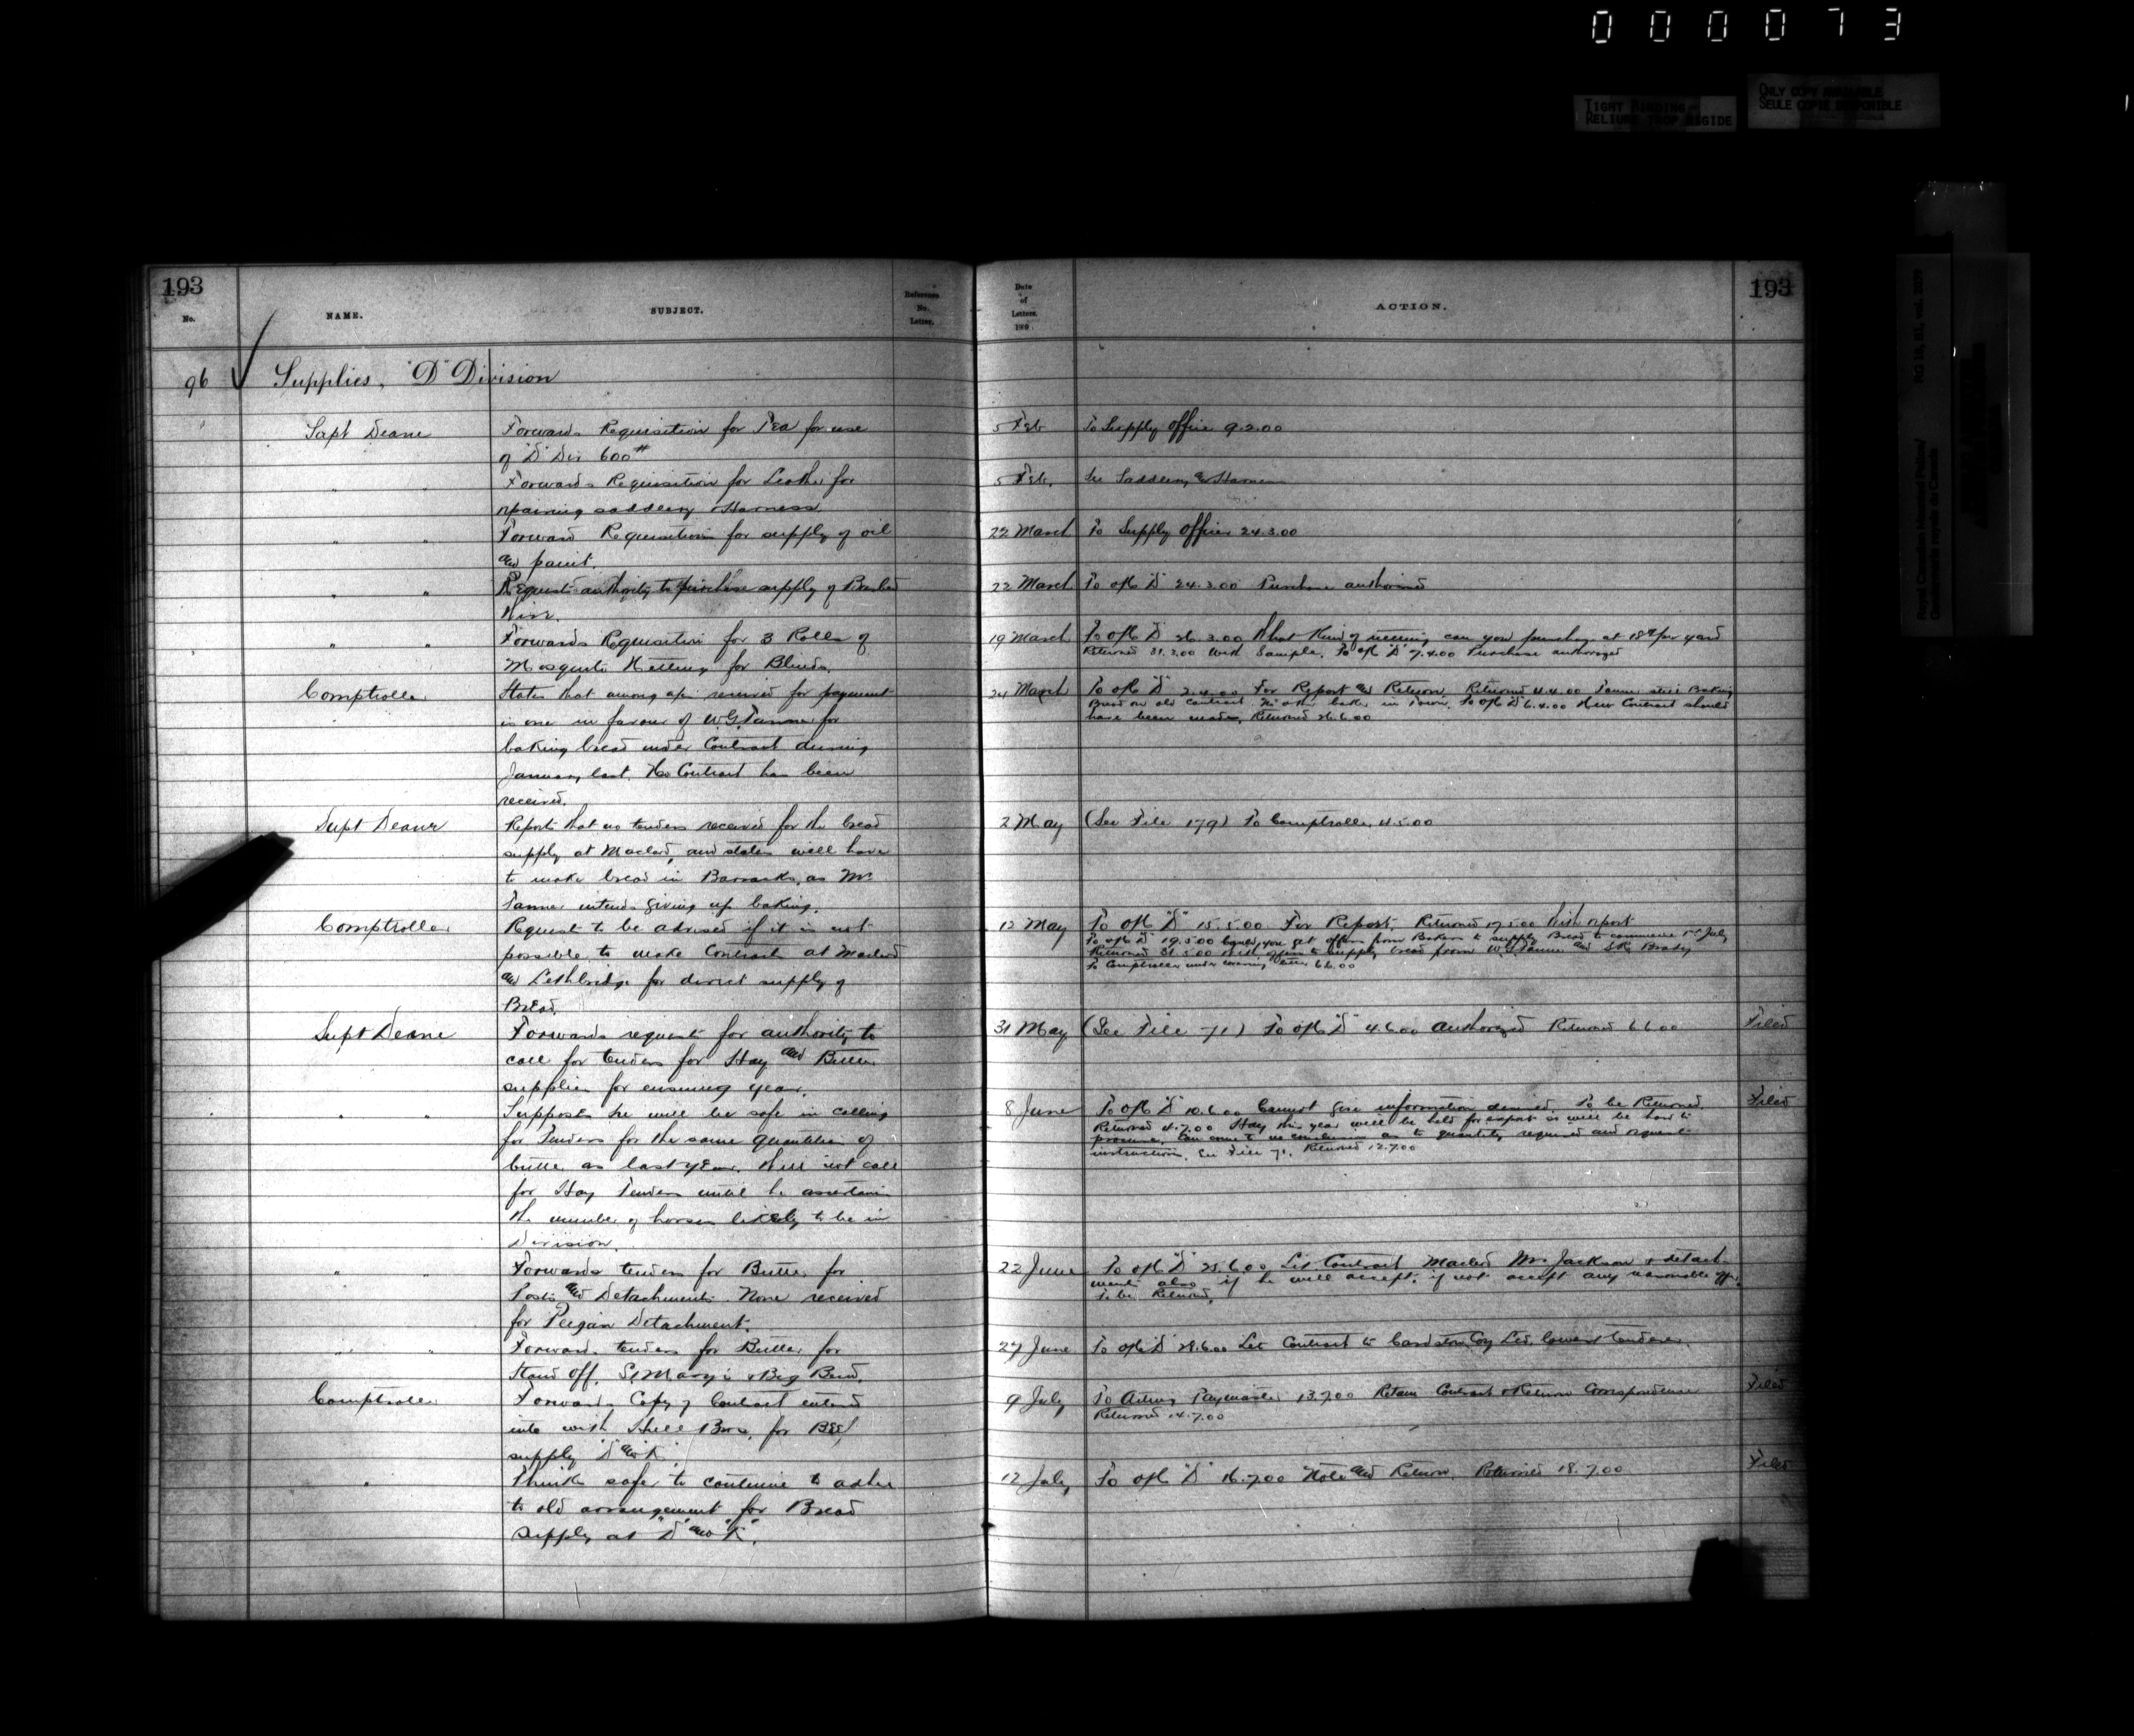 000073
TIGHT BINDING
RELIURE TROP RIGIDE
ONLY COPY AVAILABLE
SEULE COPIE DISPONIBLE
Royal Canadian Mounted Police/
Gendarmerie royale du Canada
RG 18, B1, vol.
193
No.
NAME.
SUBJECT.
Reference
No.
Letter.
Date
of
Letters.
189
ACTION.
193
96 Supplies, "D" Division
Supt Deane Forwards Requisition for Tea for use 5 Feb To Supply Officer 9.2.00
of "D" Div 600#
" " Forwards Requisition for Leather for 5 Feb. See Saddlery & Harness
repairing saddlery & Harness
" " Forward Requisition for supply of oil 22 March To Supply Officer 24.3.00
and paint.
" " Requests authority to purchase supply of Barbed 22 March To ofc "D" 24.3.00 Purchase authorized
Wire.
" " Forwards Requisition for 3 Rolls of 19 March To ofc "D" 26.3.00 What kind of netting can you purchase at 18¢ per yard
Mosquito Netting for Blinds. Returned 31.3.00 with Sample. To ofc "D" 7.4.00 Purchase authorized
Comptroller States that among a/cs received for payment 24 March To ofc "D" 2.4.00 For Report and Return. Returned 4.4.00 Tanner still Baking
is one in favour of W.G. Tanner for Bread on old contract No other baker in Town. To ofc "D" 6.4.00 New Contract should
baking bread under Contract during have been made. Returned 26.6.00
January last. No Contract has been
received.
Supt Deane Reports that no tenders received for the bread 2 May (See File 179) To Comptroller 4.5.00
supply at Macleod, and states will have
to make bread in Barracks, as Mr
Tanner intends giving up baking.
Comptroller Request to be advised if it is not 12 May To ofc "D" 15.5.00 For Report. Returned 17.5.00 With report
possible to make Contracts at Macleod To ofc "D" 19.5.00 Could you get offers from Bakers to supply Bread to commence 1st July
and Lethbridge for direct supply of Returned 31.5.00 With offers to supply bread from W.G. Tanner and Brady
Bread. To Comptroller under covering letter 6.6.00
Supt Deane Forwards request for authority to 31 May (See File 71) To ofc "D" 4.6.00 Authorized Returned 6.6.00 Filed
call for tenders for Hay and Butter
supplies for ensuing year.
" " Supposes he will be safe in calling 8 June To ofc "D" 10.6.00 Cannot give information desired. To be Returned. Filed
for Tenders for the same quantities of Returned 4.7.00 Hay this year will be held for export as will be hard to
butter as last year. Will not call procure. Can come to no conclusion as to quantity required and request
for Hay Tenders until he ascertains instructions. See File 71. Returned 12.7.00
the number of horses likely to be in
Division.
" " Forwards tenders for Butter for 22 June To ofc "D" 25.6.00 Let Contract Macleod Mrs Jackson & detach-
Posts and Detachments. None received ments also if he will accept, if not accept any reasonable offer.
for Peigan Detachment. To be Returned.
" " Forwards tenders for Butter for 27 June To ofc "D" 28.6.00 Let Contract to Cardston Coy Ltd, lowest tenderer.
Stand Off, St Mary's & Big Bend.
Comptroller Forwards Copy of Contract entered 9 July To Acting Paymaster 13.7.00 Retain Contract & Return Correspondence Filed
into with Hull Bros. for Beef Returned 14.7.00
supply "D" and "K".
" Thinks safer to continue to adhere 12 July To ofc "D" 16.7.00 Note and Return. Returned 18.7.00 Filed
to old arrangement for Bread
supply at "D" and "K".